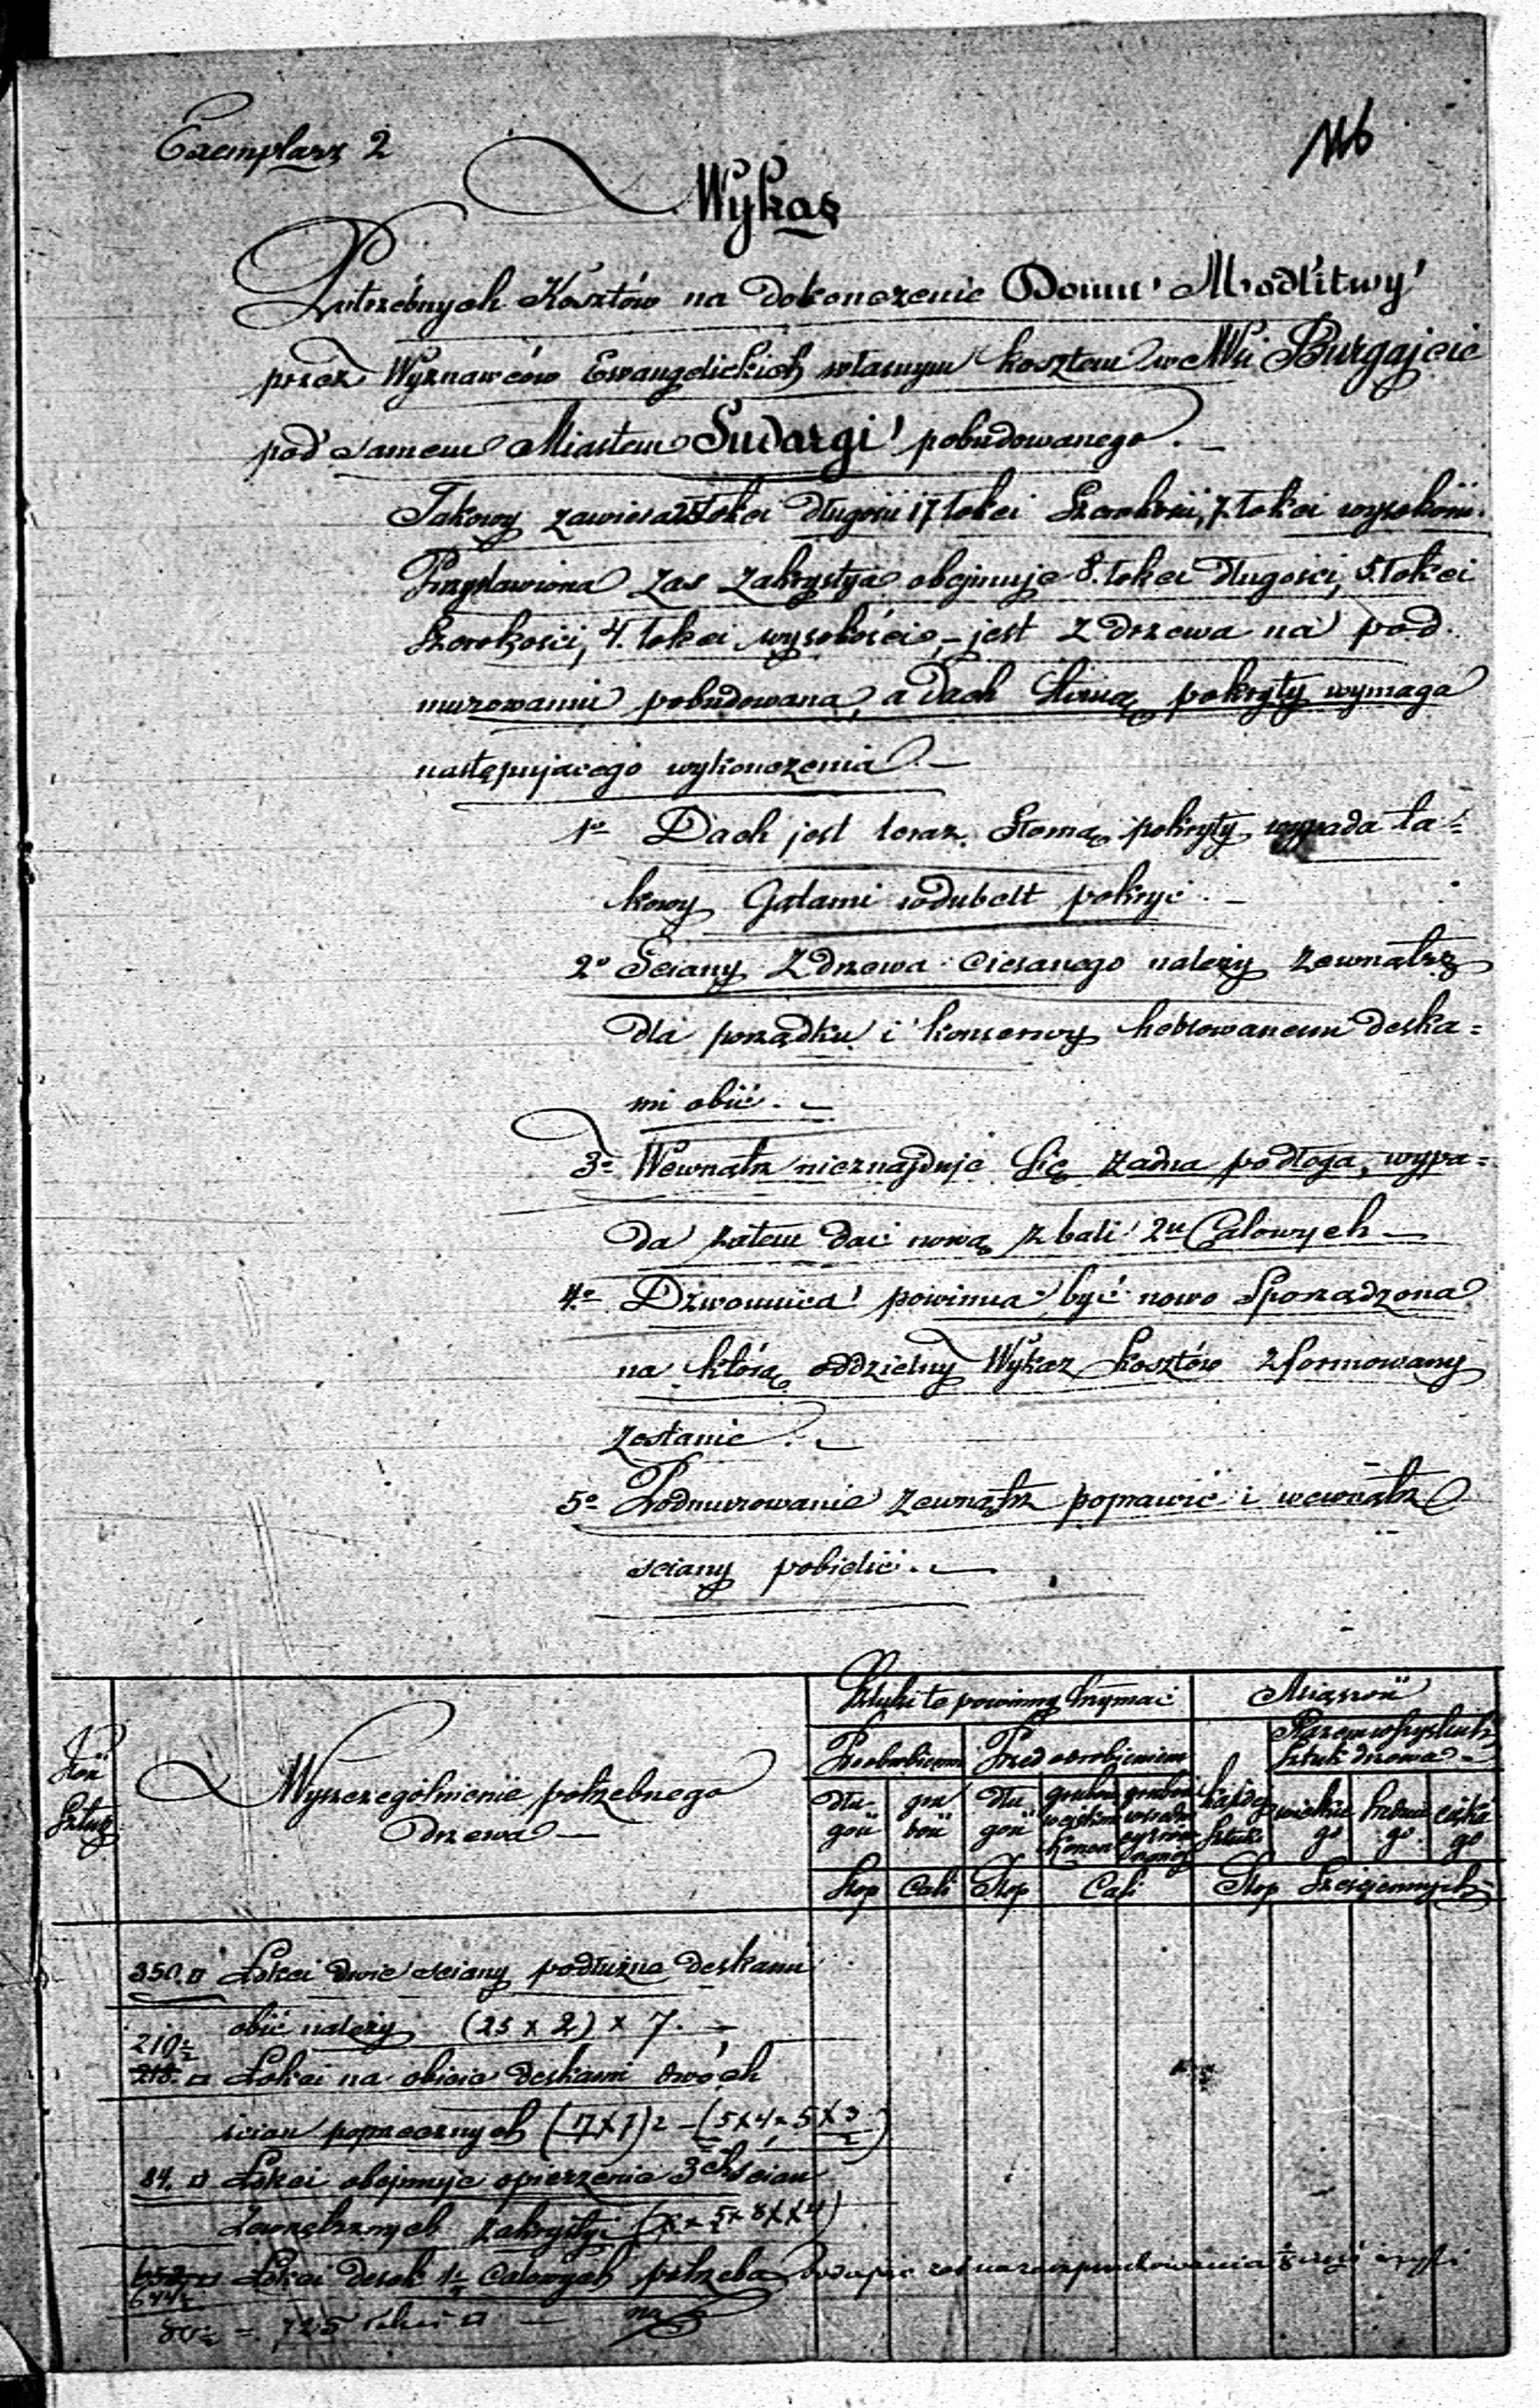 Exemplarz 2
116
Wykaz
Potrzebnych Kosztów na dokonczenie Domu Modlitwy
przez Wyznawców Ewangelickich własnym kosztem we Wsi Burgajcie
pod samem Miastem Sudargi pobudowanego. —
Takowy zawiera 25 łokci długości 17 łokci Szerokości, 7. łokci wysokości.
Przystawiona zas Zakrystya obejmuje 8. łokci długości, 5. łokci
Szerokości, 4. łokci wysokości, – jest z drzewa na pod
murowaniu pobudowana, a dach Słomą pokryty wymaga
następujacego wykonczenia —
1o Dach jest teraz Słomą pokryty wypada ta=
kowy Gątami wdubelt pokryć. —
2o Sciany z drzewa ciesanego należy zewnątrz
dla porządku i konserwy heblowanemi deska=
mi obić. —
3o Wewnątrz nieznajduje się żadna podłoga, wypa=
da zatem dać nową z bali 2u Calowych —
4o Dzwonnica powinna być nowo Sporządzona
na którą oddzielny Wykaz kosztów zformowany
zostanie. —
5o Podmurowanie zewnątrz poprawić i wewnątrz
sciany pobielić. —
Sztuki te powinny trzymać
Miąższość
Ilość
Sztuk
Wyszczególnienie potrzebnego
drzewa —
Po obrobieniu
Przed obrobieniem
Razem wszystkich
Sztuk drzewa
dłu-
gość
gru
bość
dłu
gość
każdej
Sztuki
wielkie
go
średnie
go
Stop
Cali
Stop
Cali
Stop Sześciennych
350. □ Łokci dwie sciany podłużne deskami
obić należy (25 x 2) x 7. —
210½
□ Łokci na obicie deskami dwóch
scian poprzecznych (17 x 7) 2 – (5 x 4,
84. □ Łokci obejmuje opierzenie 3ch scian
Zewnętrznych zakrystyi
□ Łokci desek calowych potrzeba
644½
80½ = 725 łokci □ —